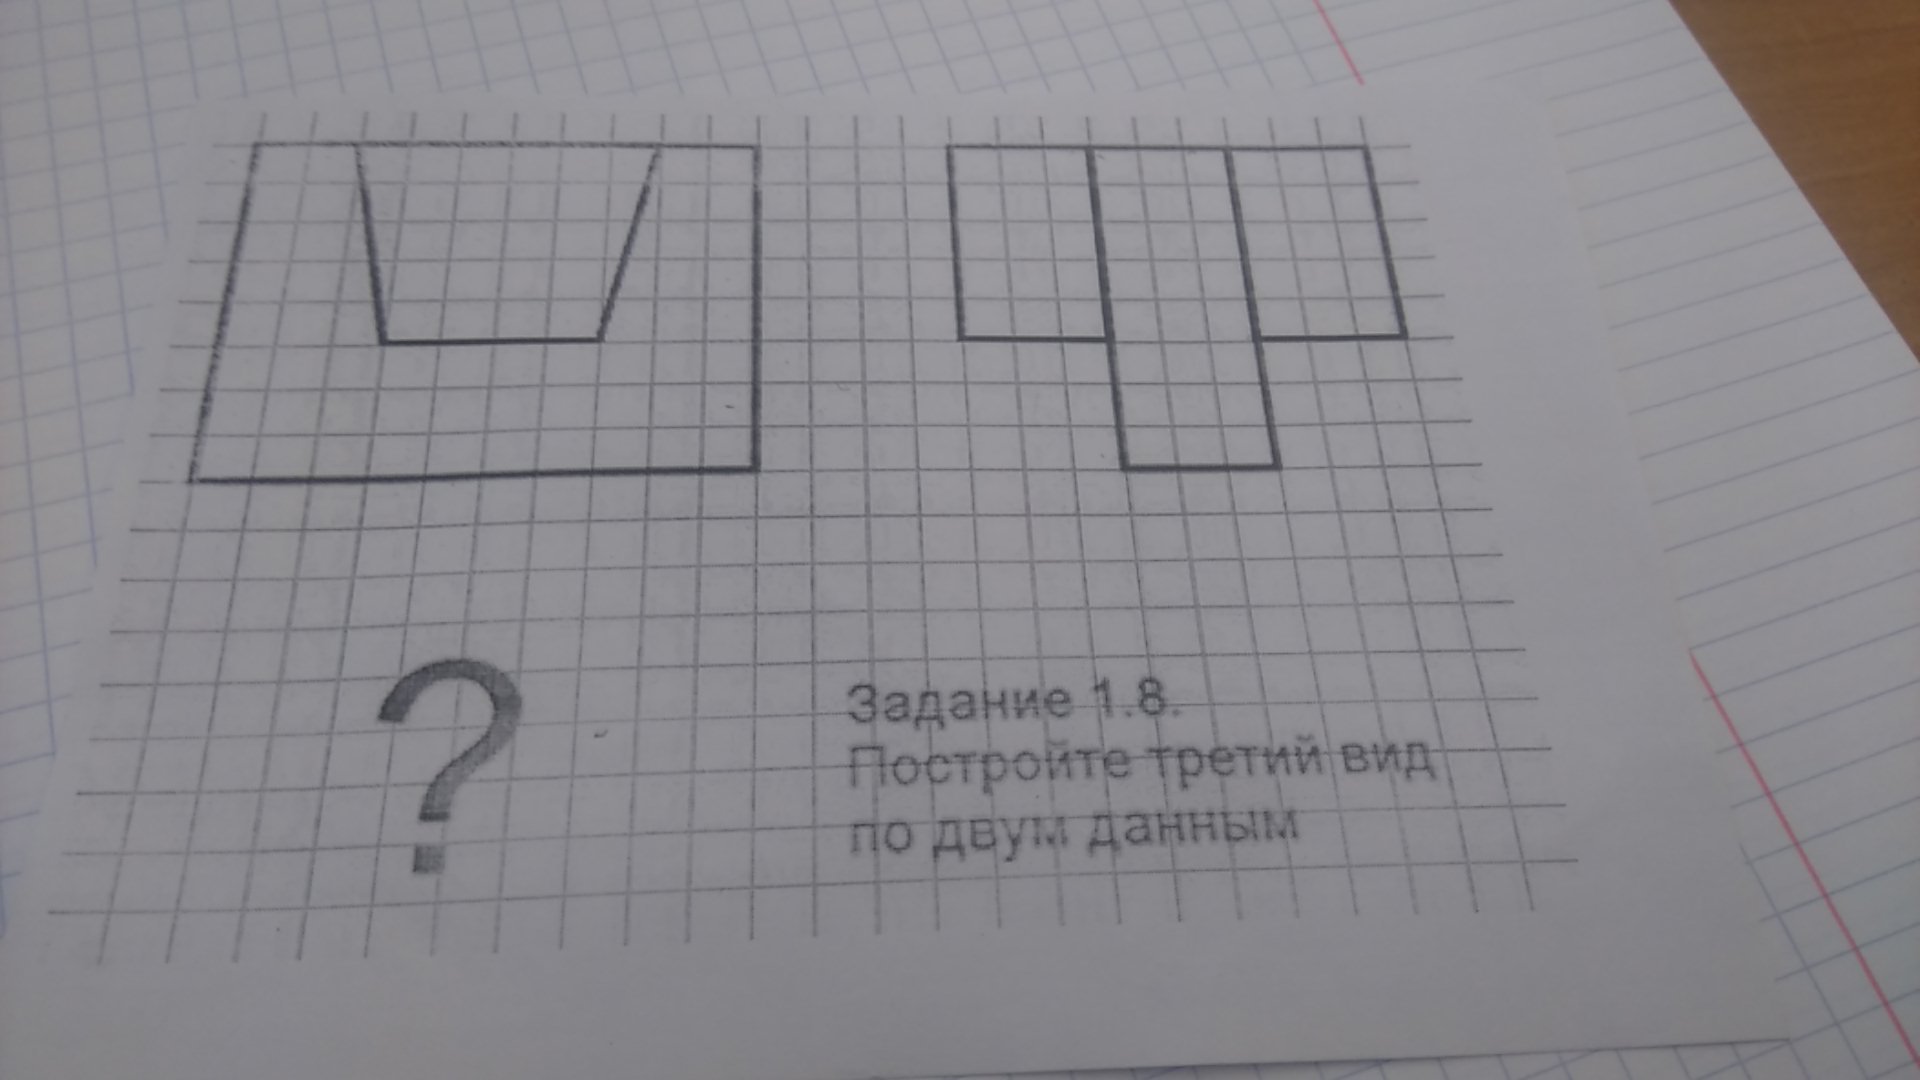 ?
Задание 1.8.
Постройте третий вид
по двум данным